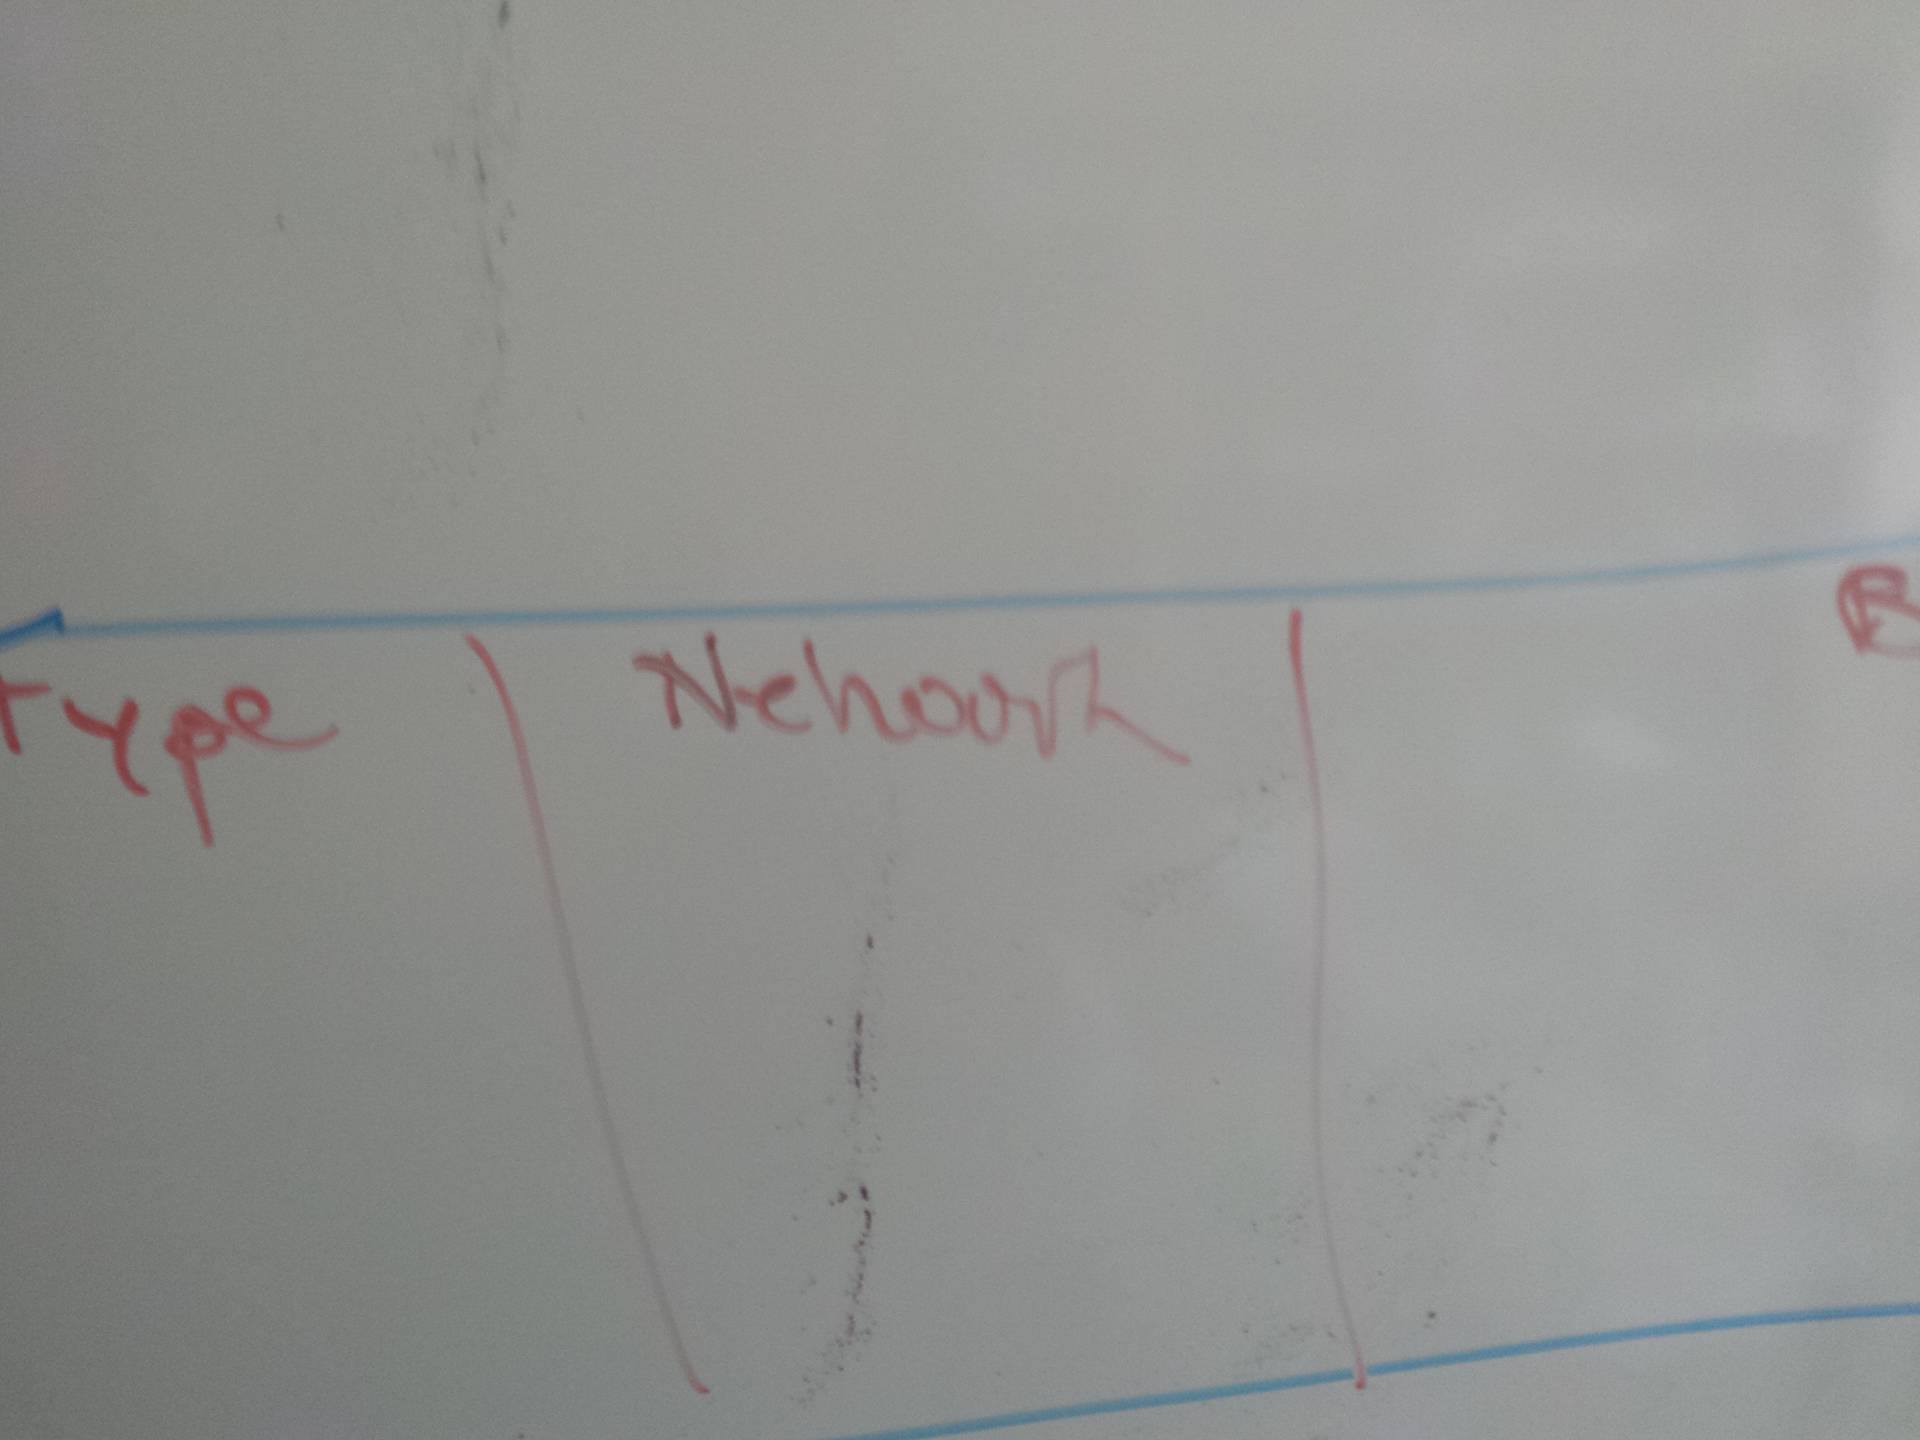 Type Network B